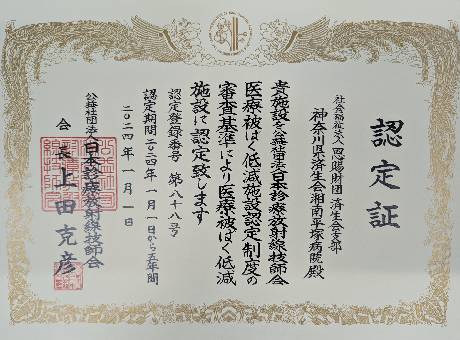 認定証
社会福祉法人 恩賜財団 済生会支部
神奈川県済生会湘南平塚病院 殿
貴施設を公益社団法人日本診療放射線技師会
医療被ばく低減施設認定制度の
審査基準により医療被ばく低減
施設に認定致します
認定登録番号 第八十八号
認定期間 二〇二四年一月一日から五年間
二〇二四年一月一日
公益社団法人 日本診療放射線技師会
会長 上田克彦